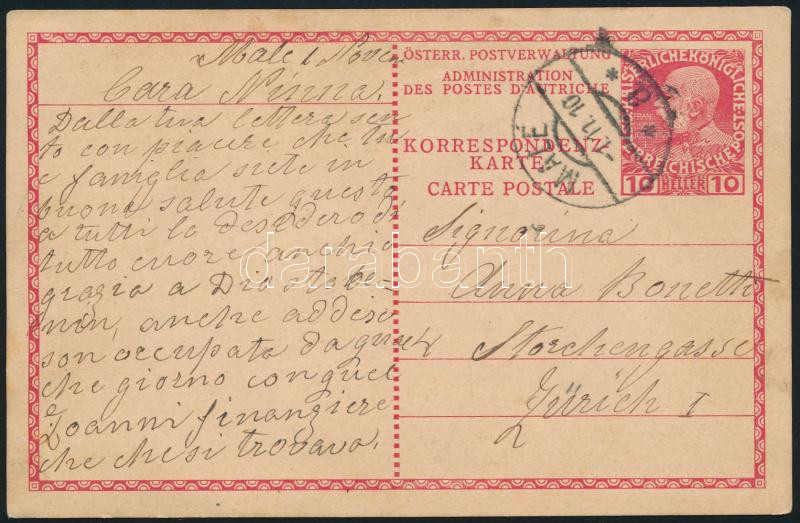 Malè 1 Novem
Cara Ninna.
Dalla tua lettera sen
to con piacere che tu
e famiglia siete in
buona salute questo
a tutti lo desidero di
tutto cuore, anchio
grazia a Dio sto be-
nin, anche addes
son occupata da qual
che giorno con quel
Zoanni finanziere
che che si trovava.
ÖSTERR. POSTVERWALTUNG
ADMINISTRATION
DES POSTES D'AUTRICHE
KORRESPONDENZ-
KARTE
CARTE POSTALE
MALÈ
-1.11.10
10 HELLER 10
Signorina
Anna Bonetti
Storchengasse
Zürich I
darabanth